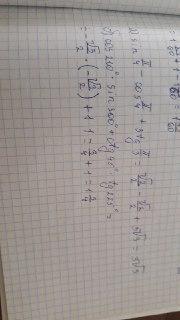 a) sin π/4 - cos π/4 + 3tg π/3 = √2/2 - √2/2 + 3√3 = 3√3
cos 210° · sin 300° + ctg 45° · tg 225° =
= -√3/2 · (-√3/2) + 1 · 1 = 3/4 + 1 = 1 3/4